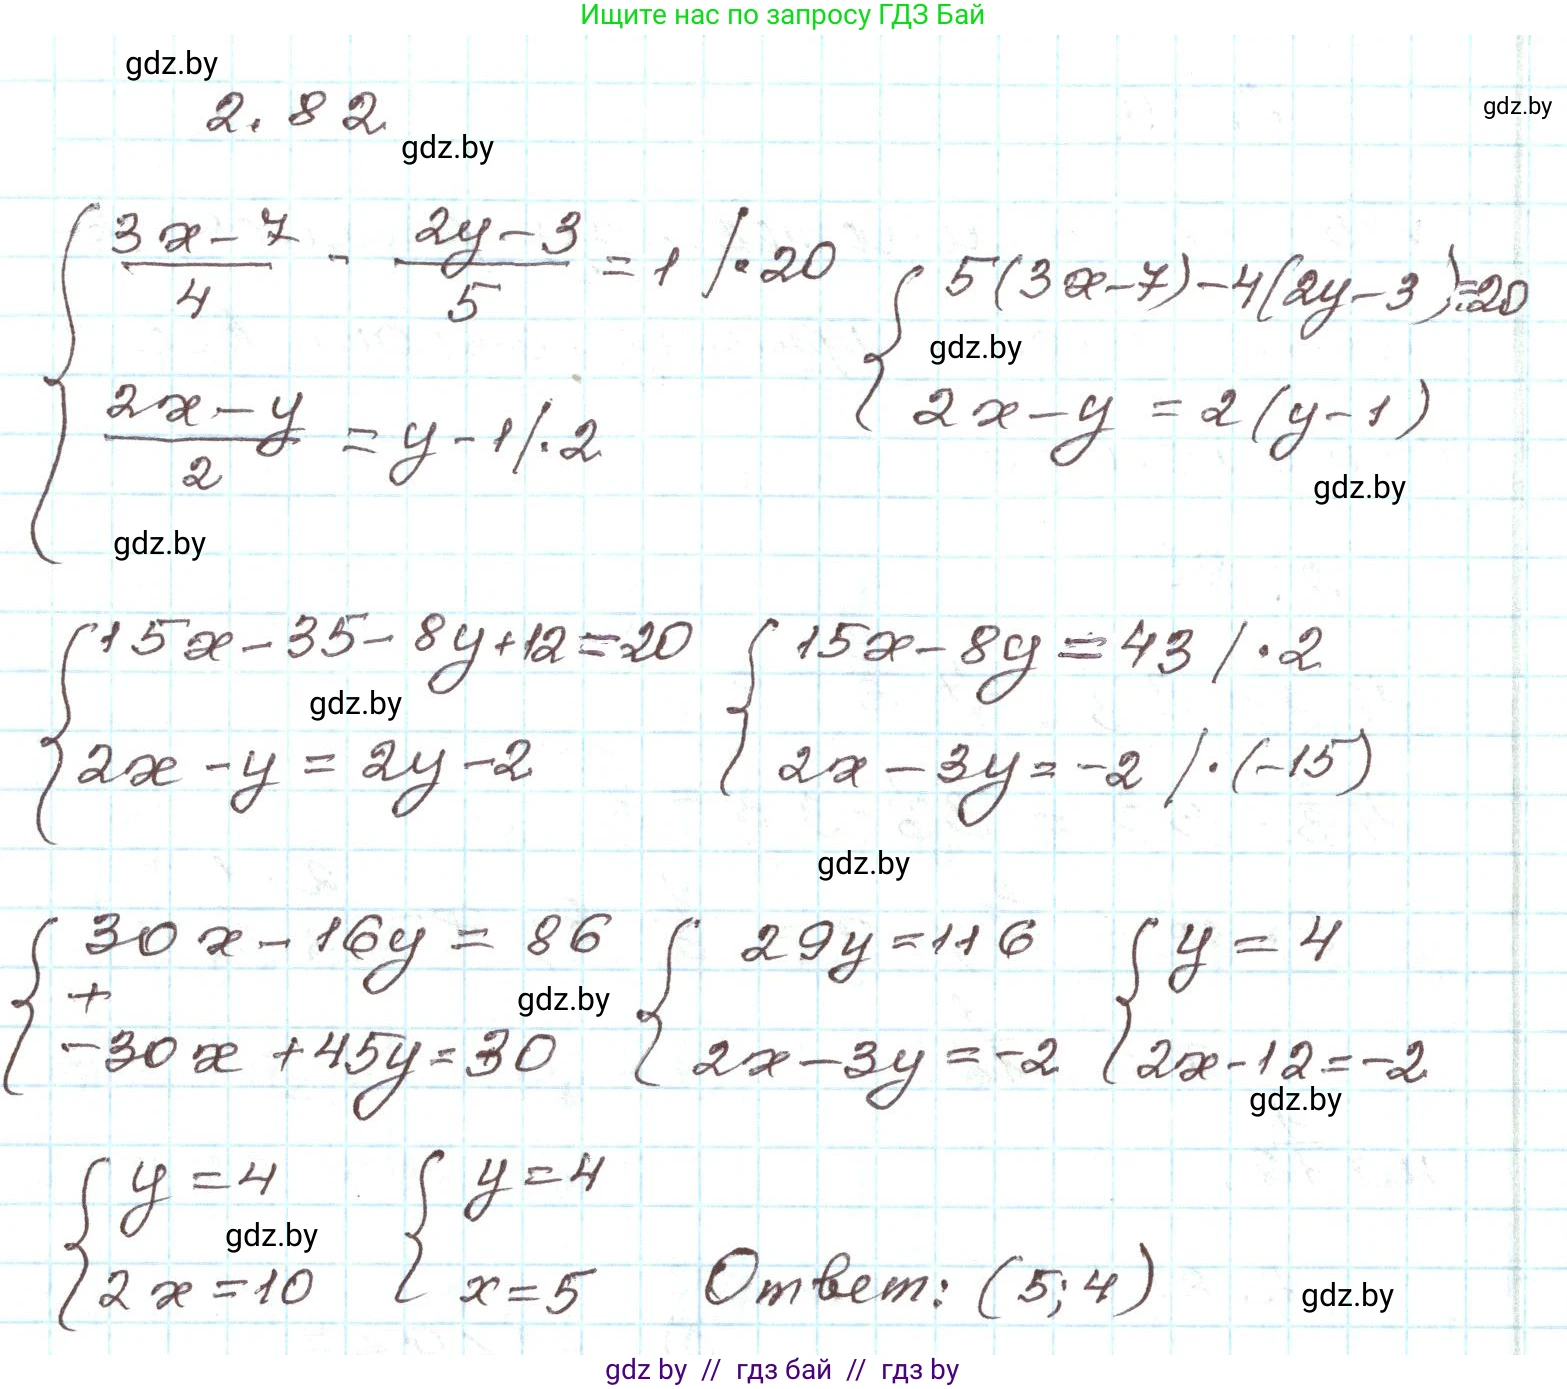 Ищите нас по запросу ГДЗ Бай
gdz.by
2.82
gdz.by
gdz.by
{ (3x-7)/4 - (2y-3)/5 = 1 | · 20
(2x-y)/2 = y-1 | · 2
{ 5(3x-7)-4(2y-3)=20
gdz.by
2x-y = 2(y-1)
gdz.by
gdz.by
{ 15x-35-8y+12=20
gdz.by
2x-y = 2y-2
{ 15x-8y=43 | · 2
2x-3y=-2 | · (-15)
gdz.by
{ 30x-16y = 86
+
-30x+45y=30
gdz.by
{ 29y=116
2x-3y=-2
{ y=4
2x-12=-2
gdz.by
{ y=4
gdz.by
2x=10
{ y=4
x=5
Ответ: (5;4)
gdz.by
gdz by // гдз бай // гдз by